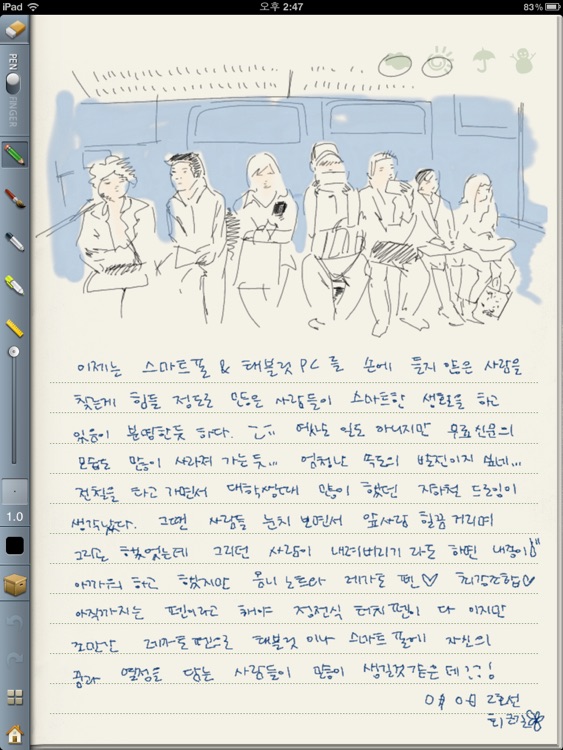 iPad 오후 2:47 83%
PEN
FINGER
1.0
이제는 스마트폰 & 태블릿 PC를 손에 들지 않은 사람을
찾는게 힘들 정도로 많은 사람들이 스마트한 생활을 하고
있음이 분명한듯 하다. 어찌보면 일도 아니지만 무료신문의
모습도 많이 사라져 가는듯... 엄청난 속도의 발전이지 싶네...
전철을 타고 가면서 대학생때 많이 했던 지하철 드로잉이
생각났다. 그땐 사람들 눈치 보면서 앞사람 힐끔거리며
그리곤 했었는데 그리던 사람이 내려버리기 라도 하면
하고 했지만 옴니노트와 레가토 펜♡ 최강조합♡
아직까지는 펜이라고 해야 정전식 터치펜이 다 이지만
조만간 레가토펜으로 태블릿 이나 스마트폰에 자신의
꿈과 열정을 담는 사람들이 많이 생길것같은데??!
2호선